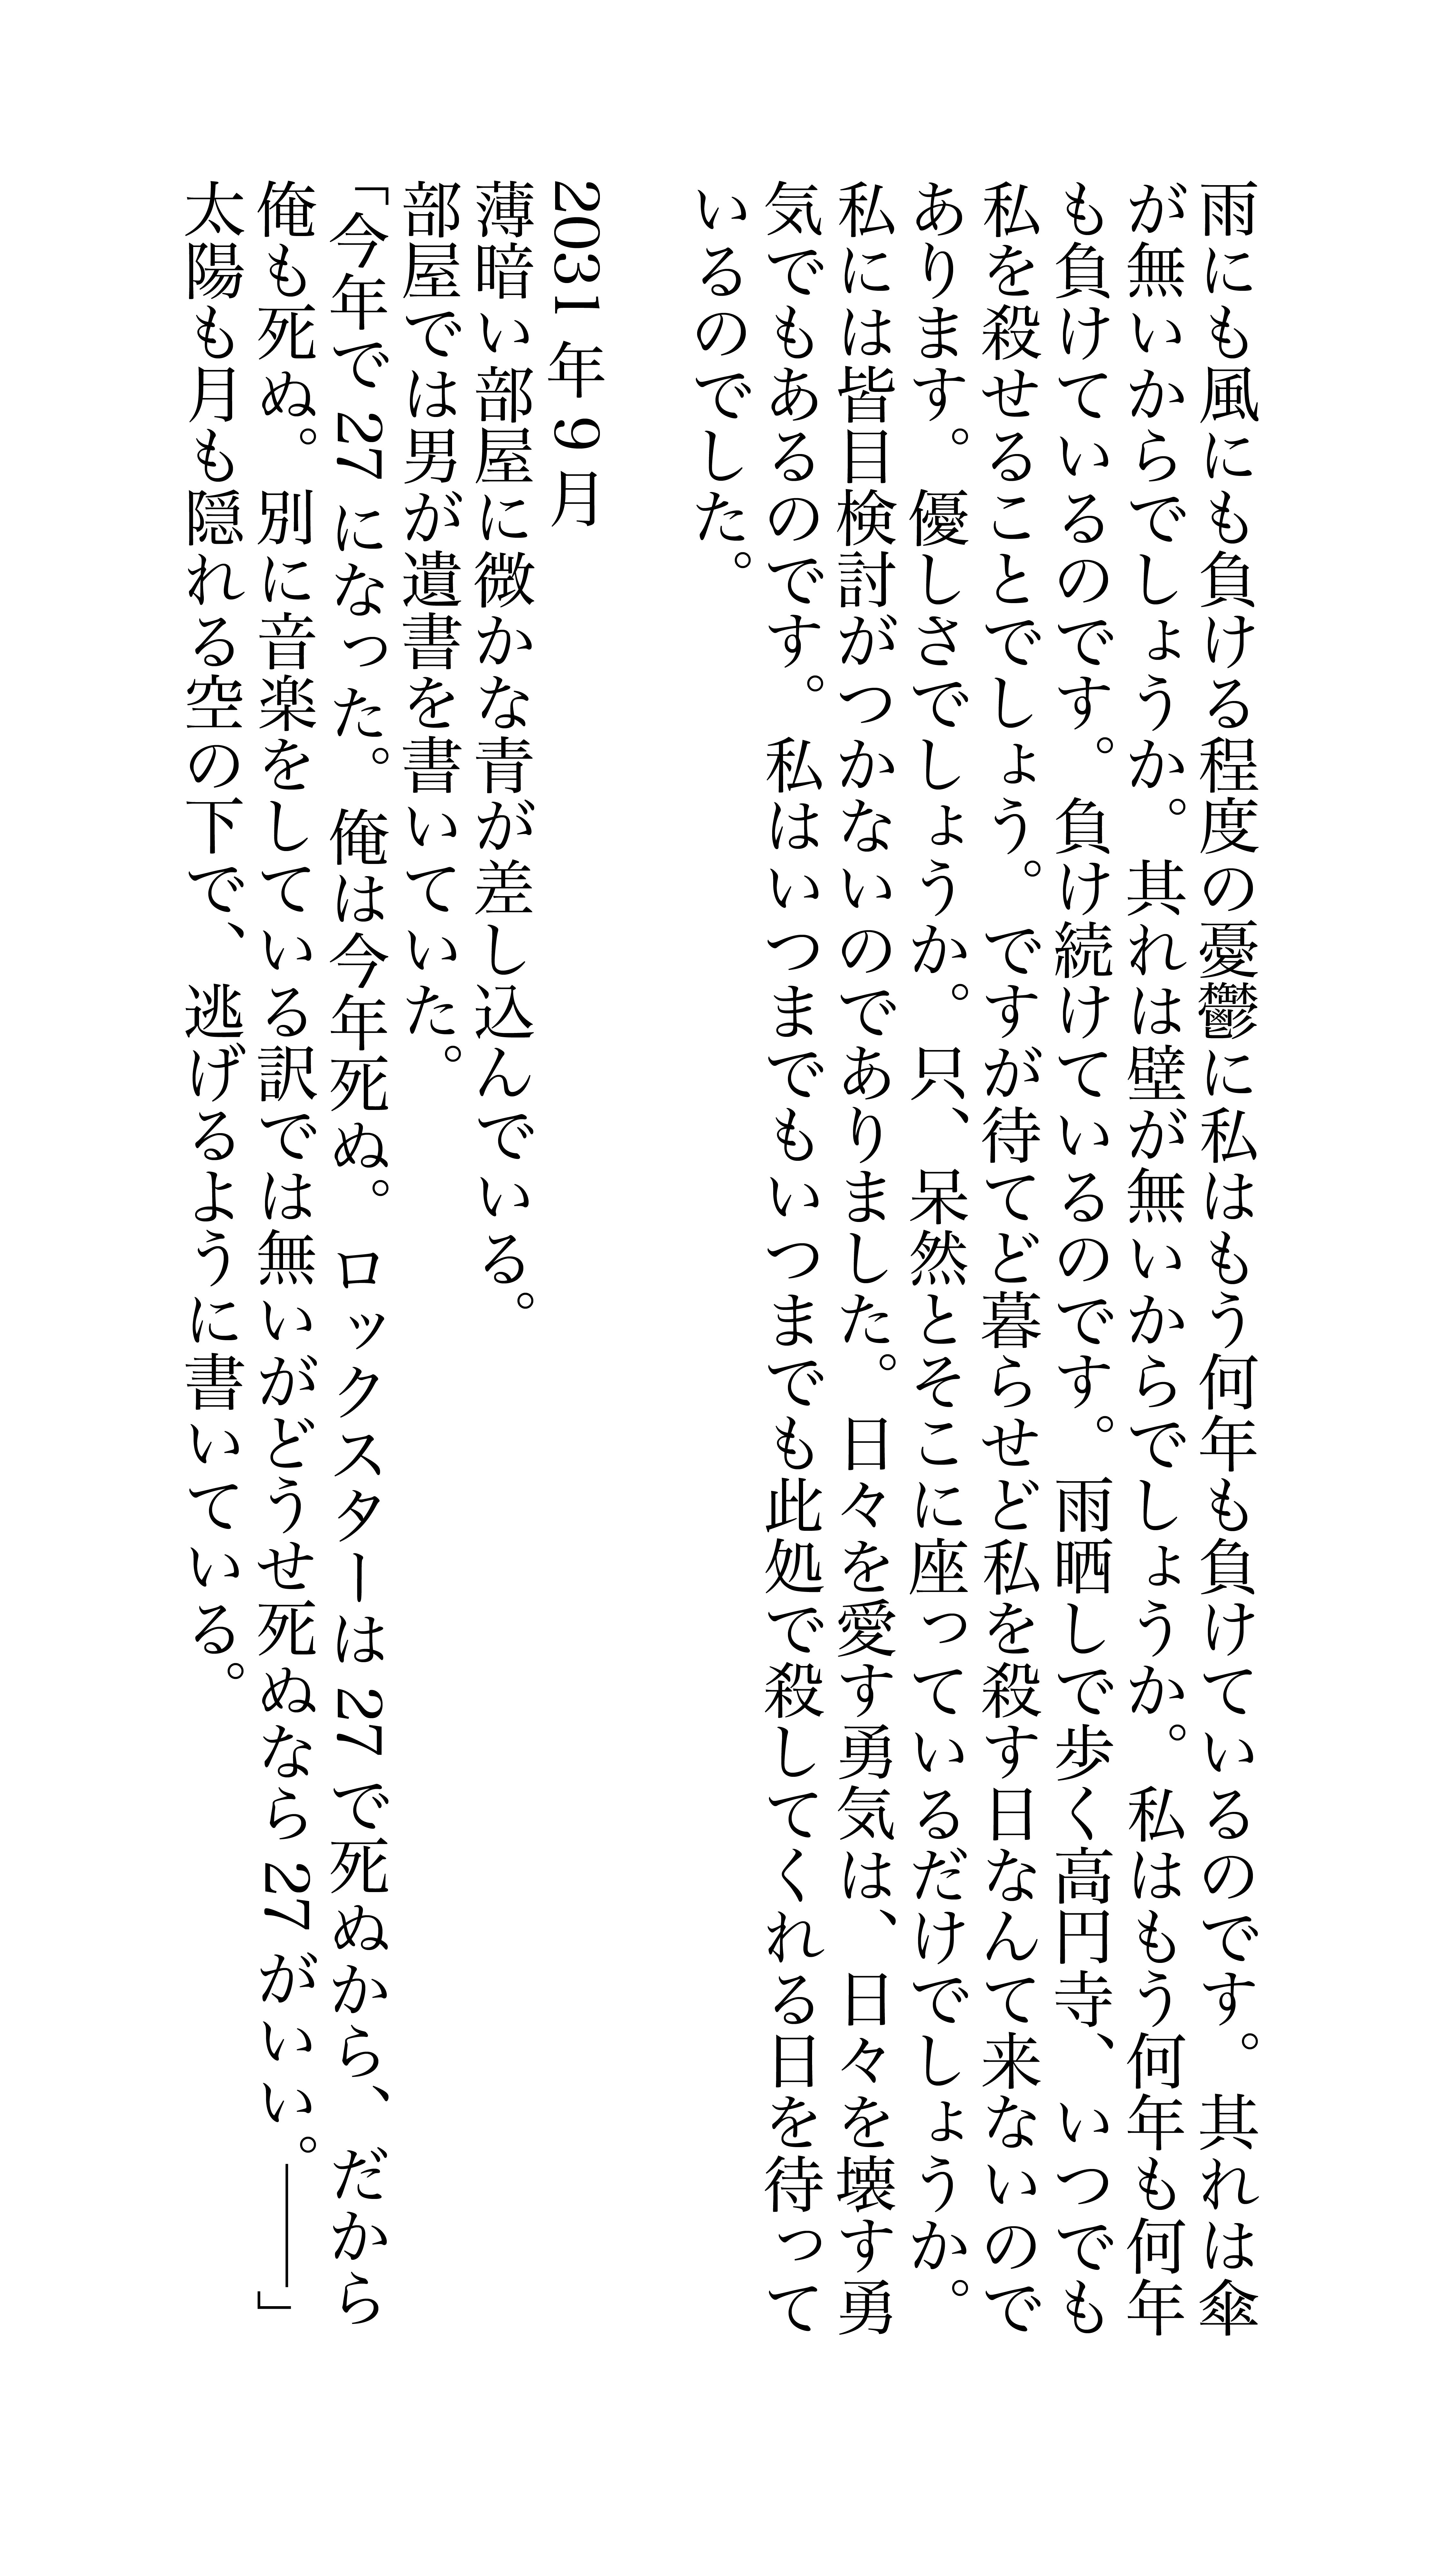 雨にも風にも負ける程度の憂鬱に私はもう何年も負けているのです。其れは傘
が無いからでしょうか。其れは壁が無いからでしょうか。私はもう何年も何年
も負けているのです。負け続けているのです。雨晒しで歩く高円寺、いつでも
私を殺せることでしょう。ですが待てど暮らせど私を殺す日なんて来ないので
あります。優しさでしょうか。只、呆然とそこに座っているだけでしょうか。
私には皆目検討がつかないのでありました。日々を愛す勇気は、日々を壊す勇
気でもあるのです。私はいつまでもいつまでも此処で殺してくれる日を待って
いるのでした。
2031年9月
薄暗い部屋に微かな青が差し込んでいる。
部屋では男が遺書を書いていた。
「今年で27になった。俺は今年死ぬ。ロックスターは27で死ぬから、だから
俺も死ぬ。別に音楽をしている訳では無いがどうせ死ぬなら27がいい。――」
太陽も月も隠れる空の下で、逃げるように書いている。